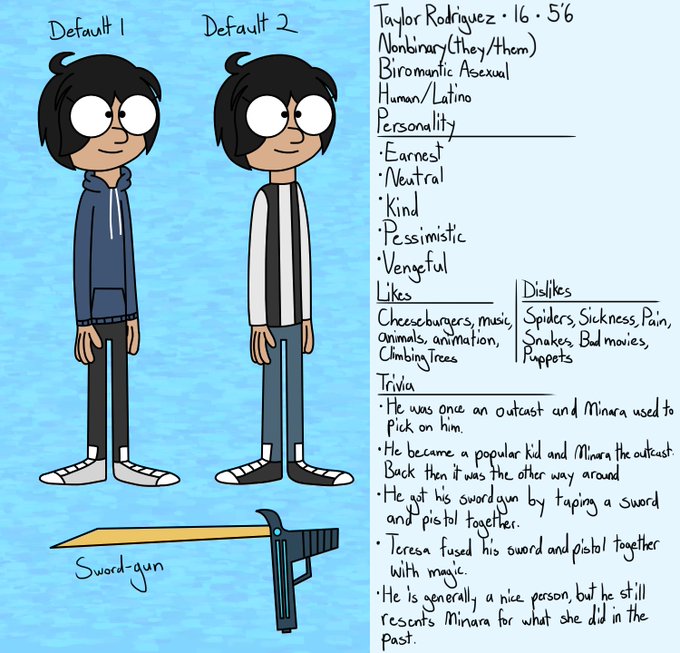 Default 1
Default 2
Sword-gun
Taylor Rodriguez • 16 • 5'6
Nonbinary(they/them)
Biromantic Asexual
Human/Latino
Personality
• Earnest
• Neutral
• Kind
• Pessimistic
• Vengeful
Likes
Cheeseburgers, music,
animals, animation,
Climbing Trees
Dislikes
Spiders, Sickness, Pain,
Snakes, Bad movies,
Puppets
Trivia
• He was once an outcast and Minara used to
pick on him.
• He became a popular kid and Minara the outcast.
Back then it was the other way around
• He got his swordgun by taping a sword
and pistol together.
• Teresa fused his sword and pistol together
with magic.
• He is generally a nice person, but he still
resents Minara for what she did in the
past.